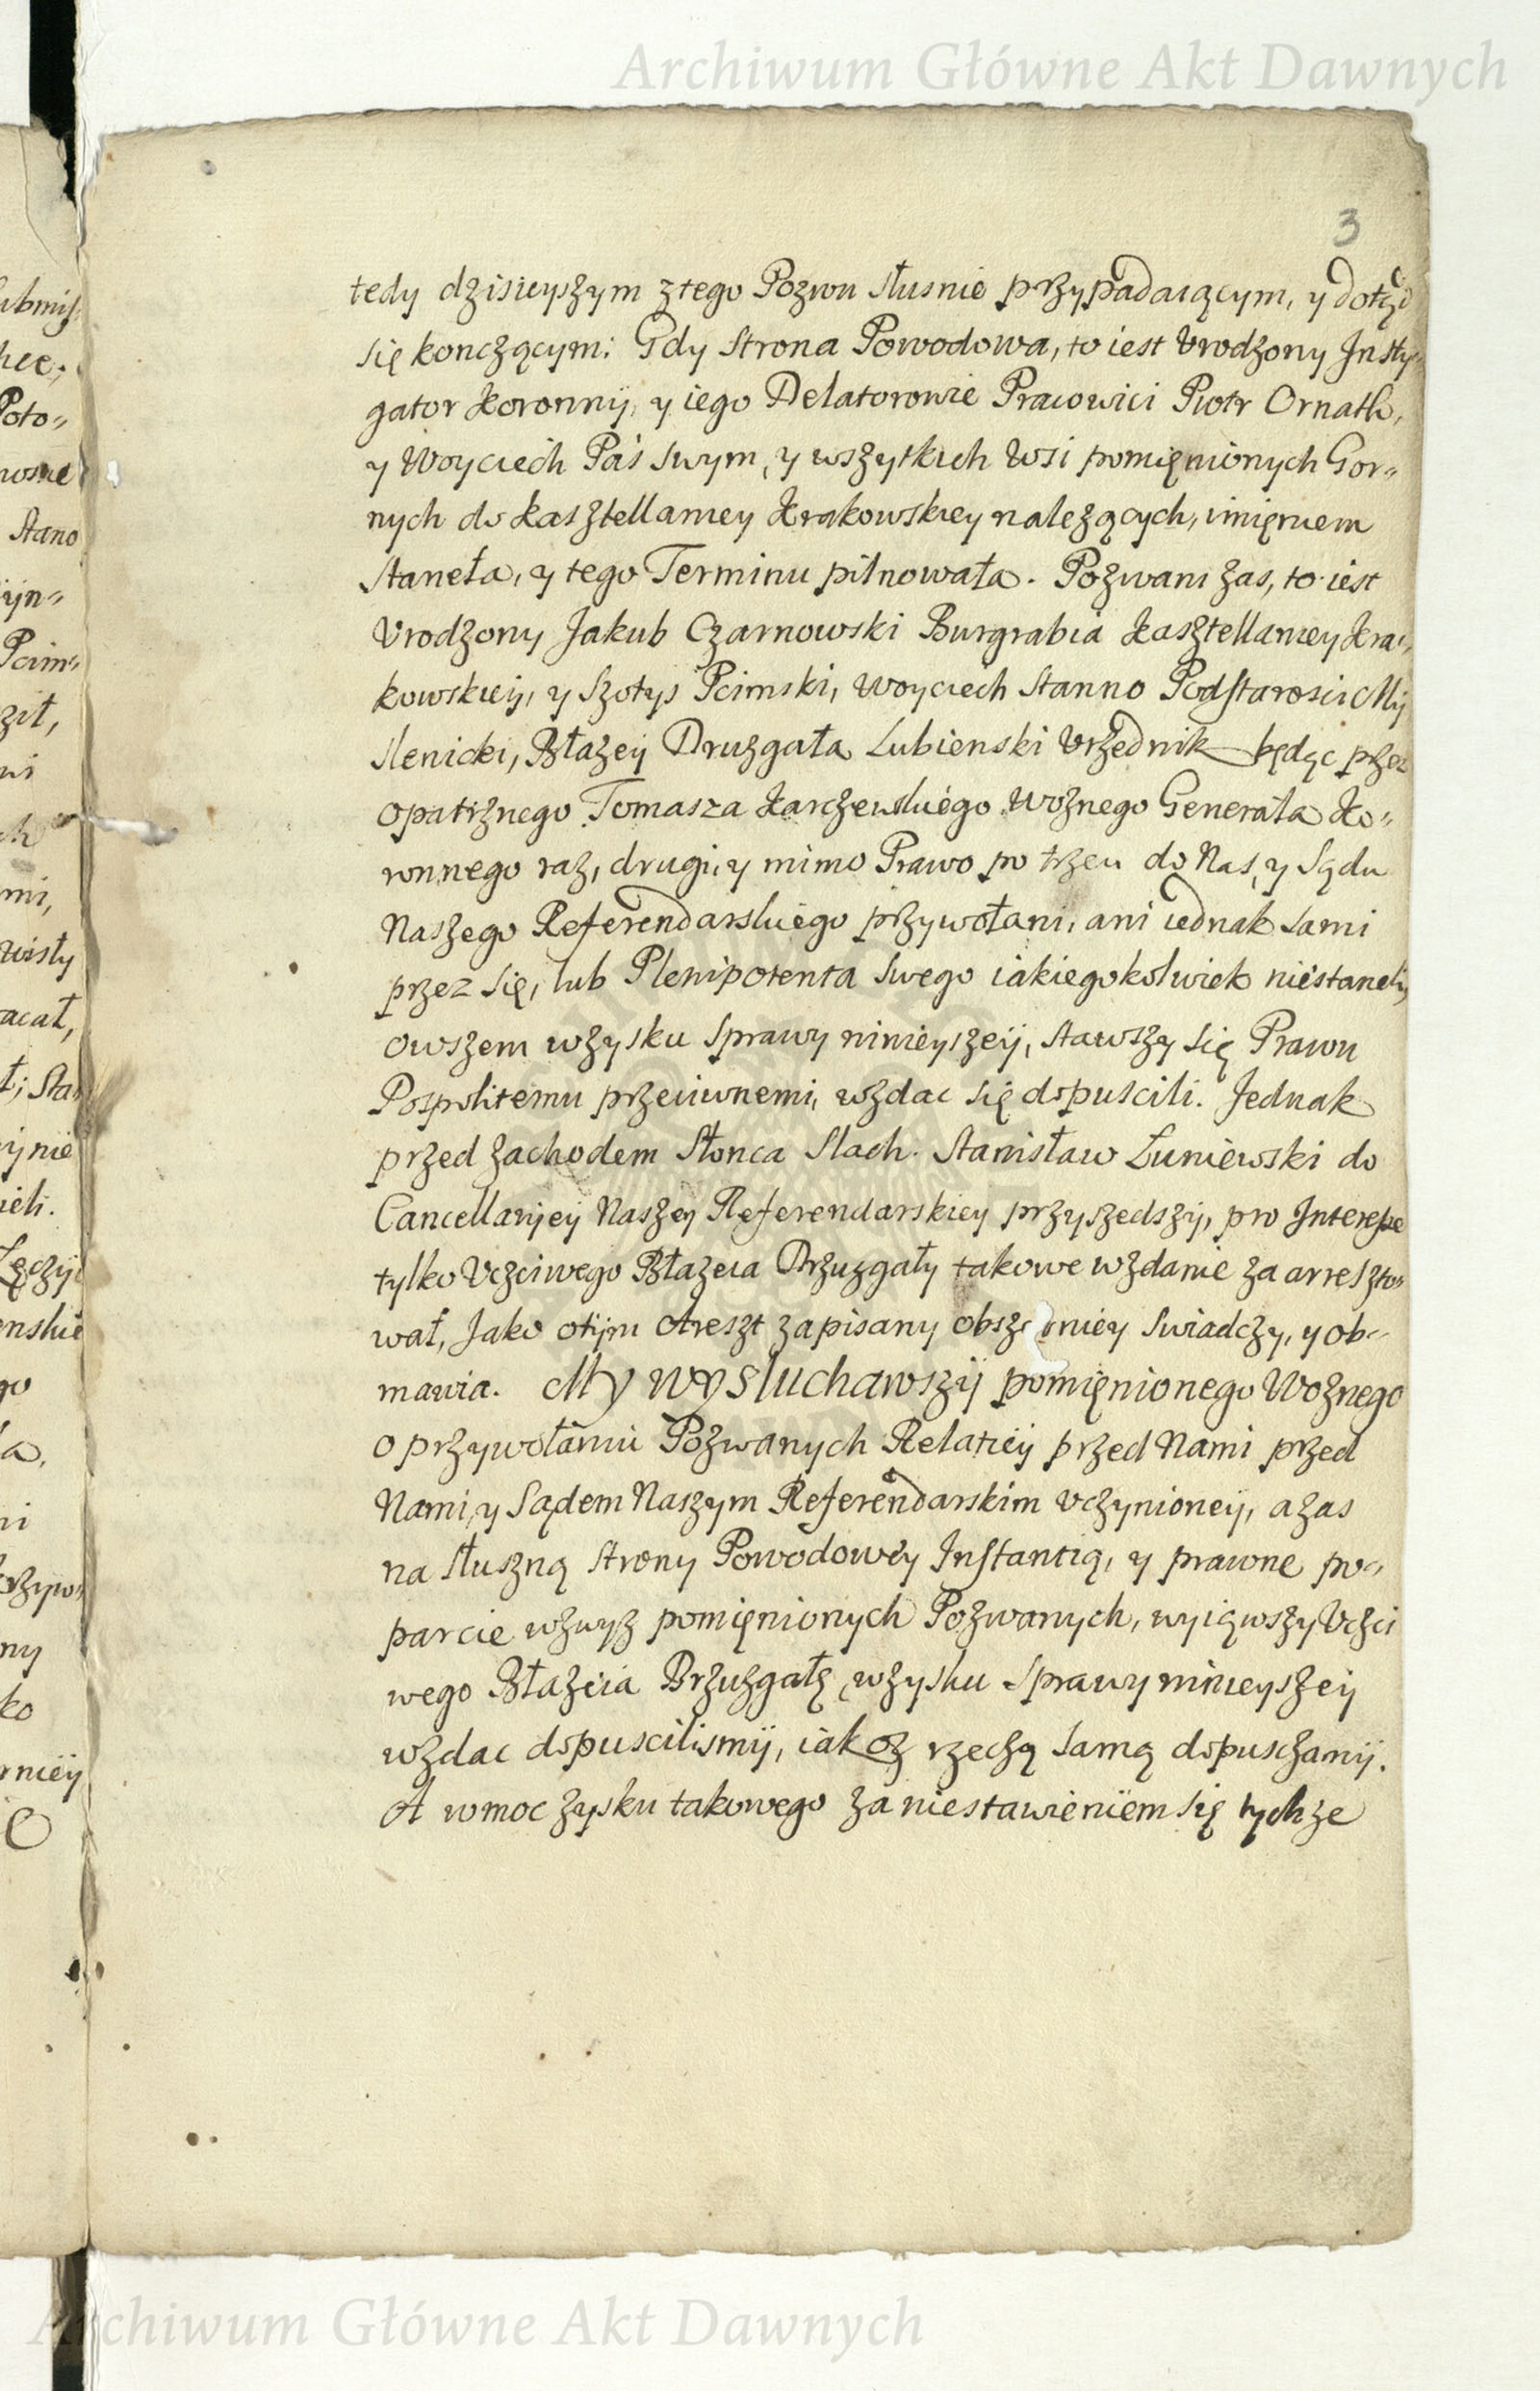 Archiwum Główne Akt Dawnych
3
tedy dzisieyszym z tego Pozwu słusnie przypadaiącym, y dotąd
się konczącym: Gdy Strona Powodowa, to iest Vrodzony Insty-
gator Koronny, y iego Delatorowie Pracowici Piotr Ornath,
y Woyciech Paś swym, y wszytkich Wsi pomięnionych Gor-
nych do Kasztellaniey Krakowskiey nalezących, imięniem
Staneła, y tego Terminu pilnowała. Pozwani zas, to iest
Vrodzony Jakub Czarnowski Burgrabia Kasztellaniey Kra-
kowskiey, y Szotys Pcimski, Woyciech Stanno Podstarosci My
slenicki, Błazey Druzgała Lubienski Vrzędnik będąc przez
opatrznego Tomasza Karczewskiego Woznego Generała Ko-
ronnego raz, drugi, y mimo Prawo po trzeci do Nas, y Sądu
Naszego Referendarskiego przywołani, ani iednak sami
przez się, lub Plenipotenta swego iakiegokolwiek niestaneli,
owszem wzysku Sprawy ninieyszey, stawszy się Prawu
Pospolitemu przeciwnemi, wzdac się dopuscili. Jednak
przed zachodem Słonca Slach. Stanisław Łuniewski do
Cancellaryey Naszey Referendarskiey przyszedszy, pro Interesse
tylko Vczciwego Błazeia Drzuzgały takowe wzdanie za arreszto-
wał, Jako otym Areszt zapisany obszerniey Swiadczy, y ob-
mawia. My wysłuchawszy pomięnionego Woznego
o przywołaniu Pozwanych Relatiey przed Nami przed
Nami, y Sądem Naszym Referendarskim Vczynioney, azas
na słuszną Strony Powodowey Instantią, y prawne po-
parcie wzwyz pomięnionych Pozwanych, wyiąwszy Vczci
wego Błazeia Brzuzgałę, wzysku Sprawy ninieyszey
wzdac dopuscilismy, iakoz rzeczą samą dopusczamy.
A wmoc zysku takowego za niestawieniem się tychze
Archiwum Główne Akt Dawnych